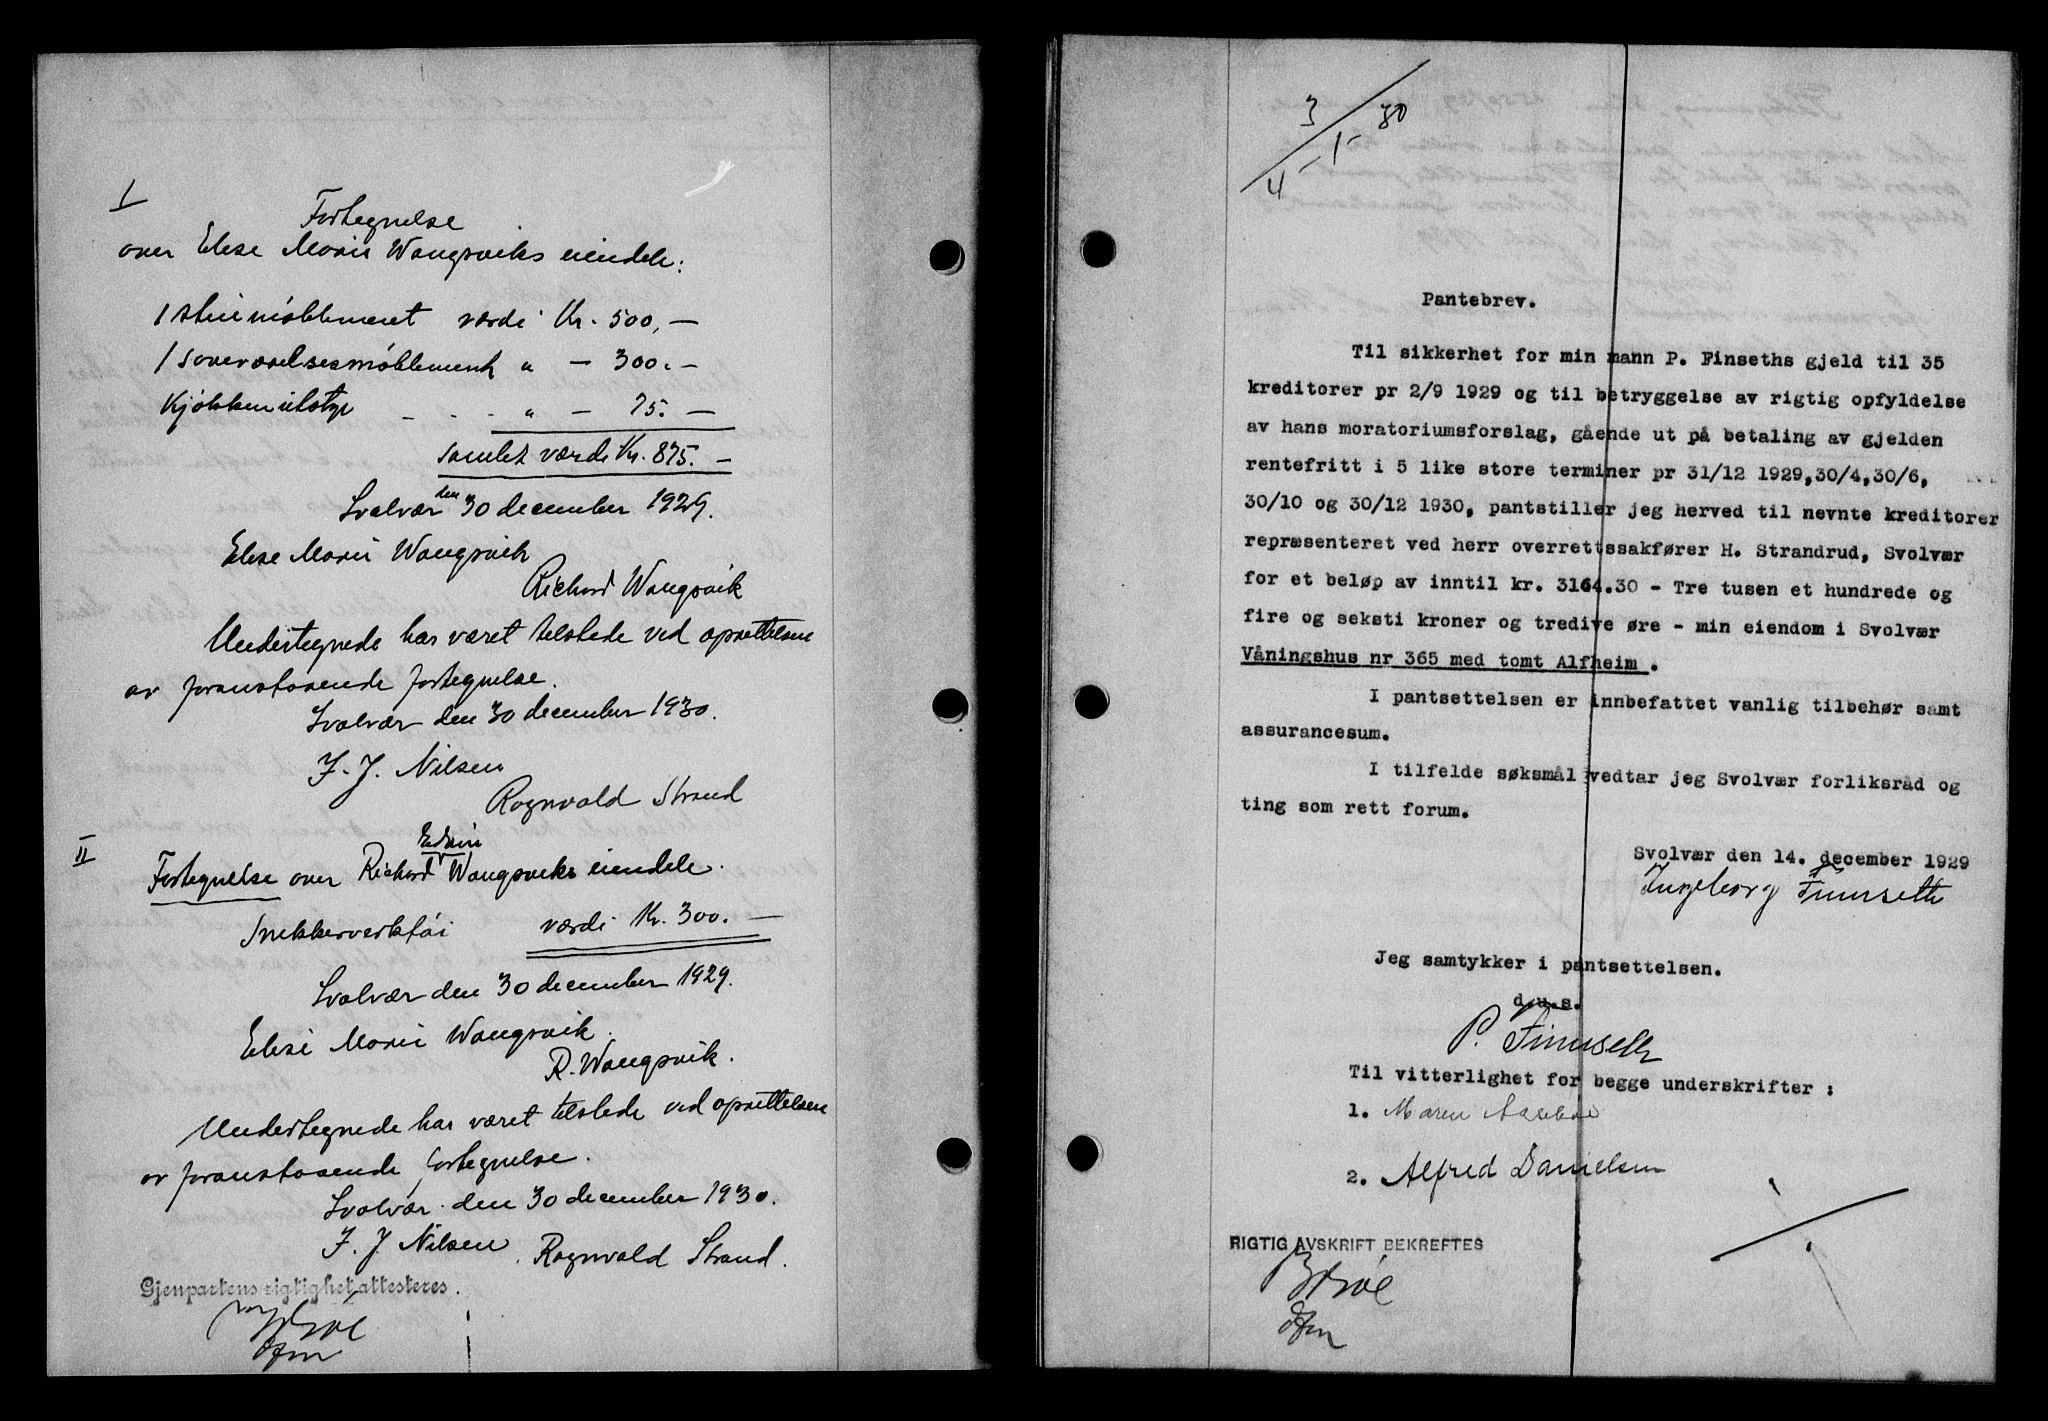 I
Fortegnelse
over Elise Marie Wangsviks eiendele:
1 stuemøblement værdi Kr. 500,—
1 soveværelsesmøblement " — 300.—
Kjøkkenutstyr - - - " — 75.—
Samlet værdi Kr. 875.—
Svolvær den 30 december 1929.
Elise Marie Wangsvik
Richard Wangsvik
Undertegnede har været tilstede ved oprettelsen
av foranstaaende fortegnelse.
Svolvær den 30 december 1930.
F. J. Nilsen
Rognvald Strand
II
Edvin
Fortegnelse over Richard Wangsviks eiendele.
Snekkerverktøi værdi Kr. 300.—
Svolvær den 30 december 1929.
Elise Marie Wangsvik.
R. Wangsvik.
Undertegnede har været tilstede ved oprettelsen
av foranstaaende fortegnelse.
Svolvær den 30 december 1930.
F. J. Nilsen. Rognvald Strand.
Gjenpartens rigtighet attesteres.
3/1-30
4
Pantebrev.
Til sikkerhet for min mann P. Finseths gjeld til 35
kreditorer pr 2/9 1929 og til betryggelse av rigtig opfyldelse
av hans moratoriumsforslag, gående ut på betaling av gjelden
rentefritt i 5 like store terminer pr 31/12 1929,30/4,30/6,
30/10 og 30/12 1930, pantstiller jeg herved til nevnte kreditorer
repræsenteret ved herr overrettssakfører H. Strandrud, Svolvær
for et beløp av inntil kr. 3164.30 - Tre tusen et hundrede og
fire og seksti kroner og tredive øre - min eiendom i Svolvær
Våningshus nr 365 med tomt Alfheim.
I pantsettelsen er innbefattet vanlig tilbehør samt
assurancesum.
I tilfelde søksmål vedtar jeg Svolvær forliksråd og
ting som rett forum.
Svolvær den 14. december 1929
Ingeborg Finnseth
Jeg samtykker i pantsettelsen.
d.u.s.
P. Finnseth
Til vitterlighet for begge underskrifter :
1. Maren
2. Alfred Danielsen
RIGTIG AVSKRIFT BEKREFTES